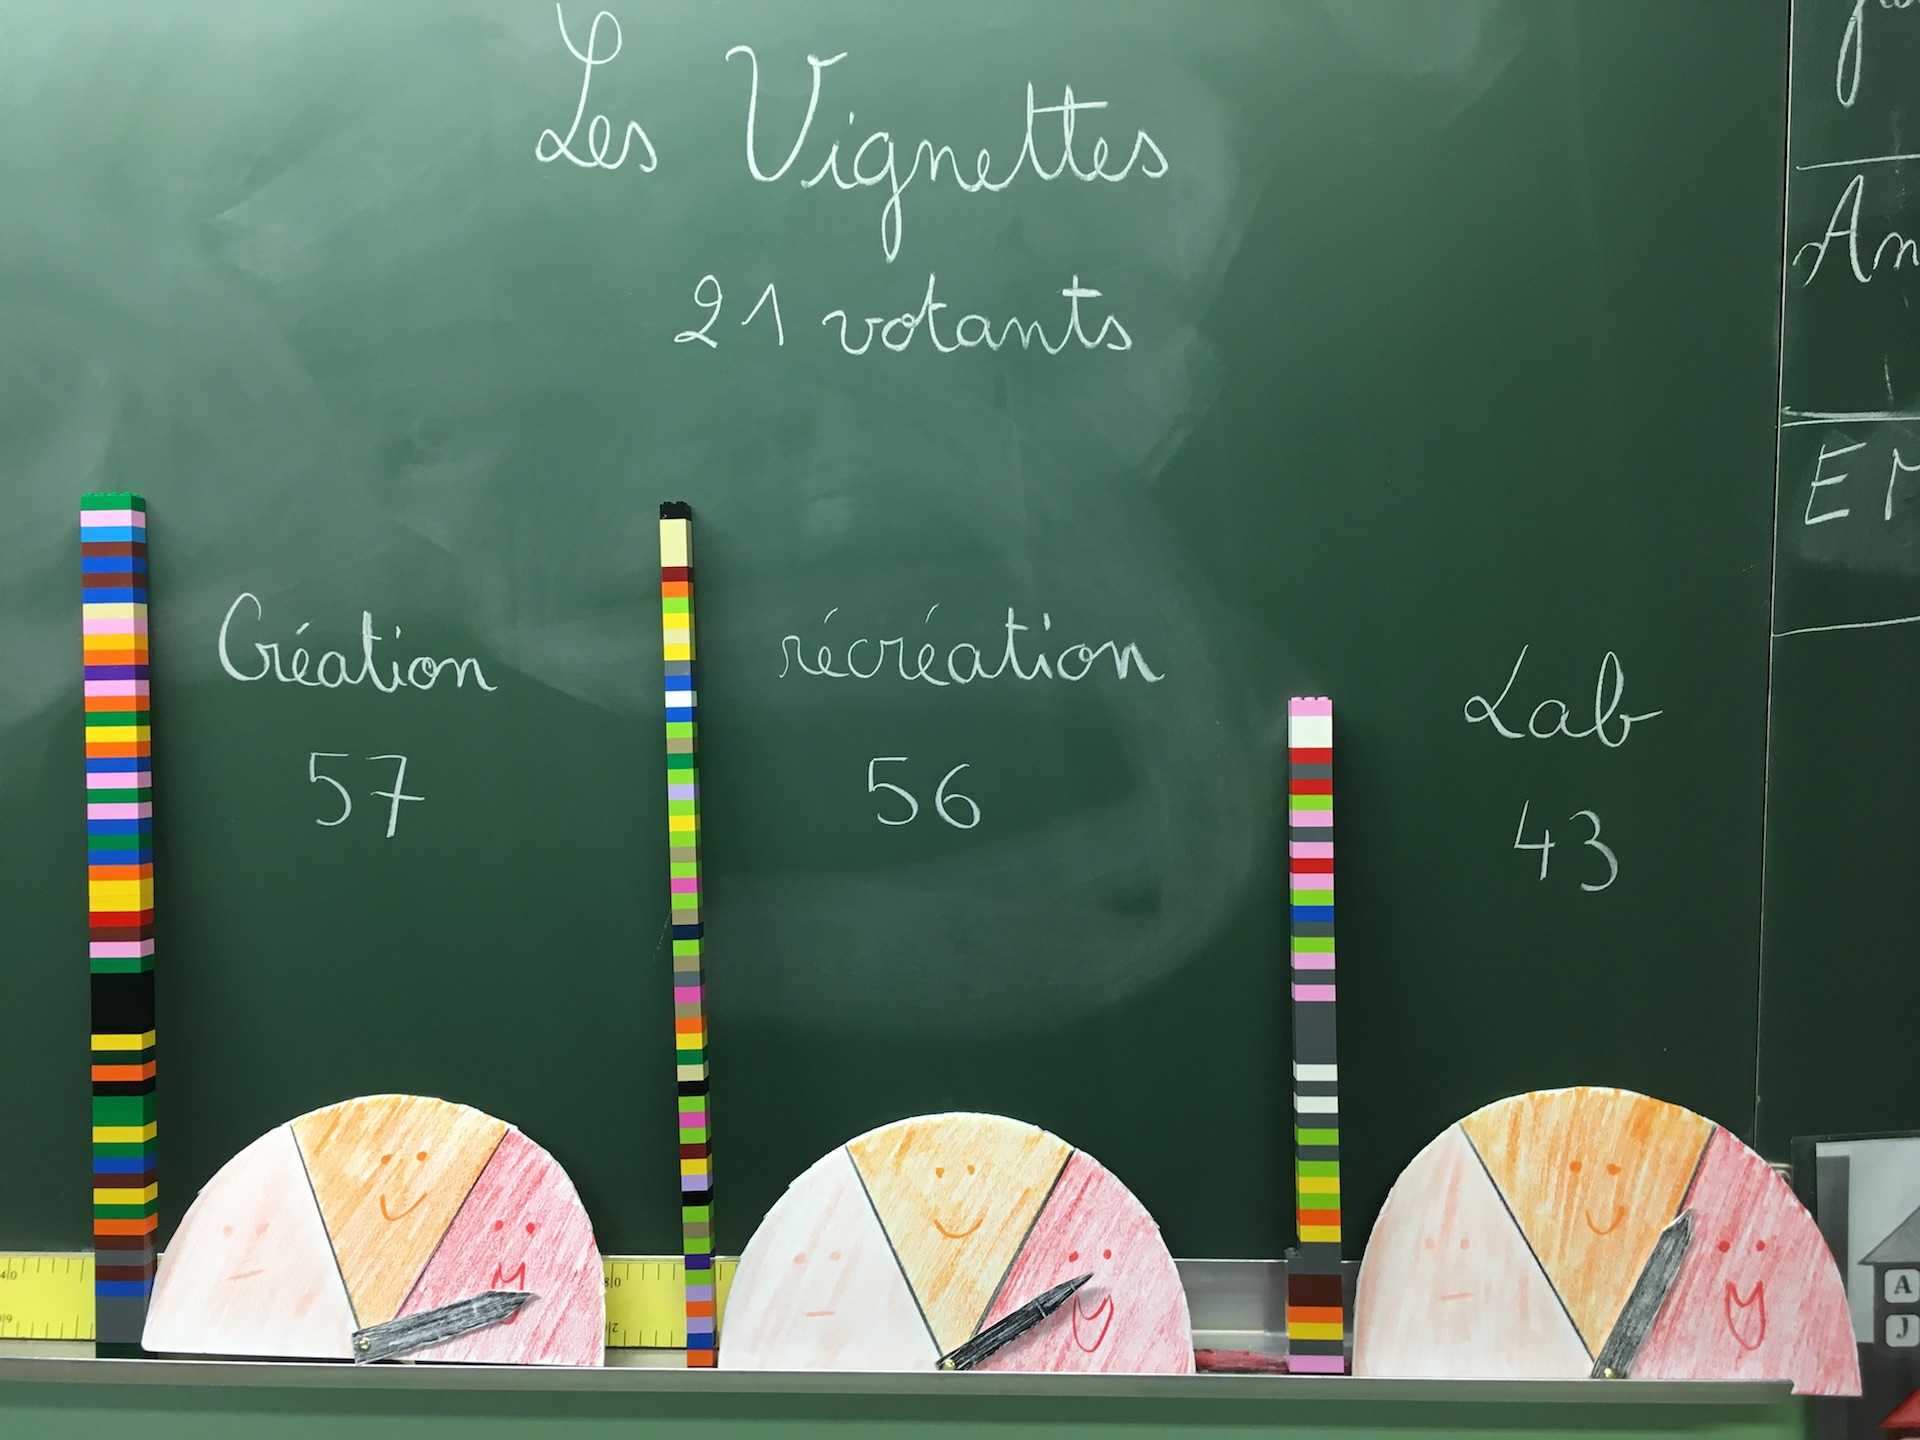 Les Vignettes
21 votants
Création
57
récréation
56
Lab
43
An
EM
A
J